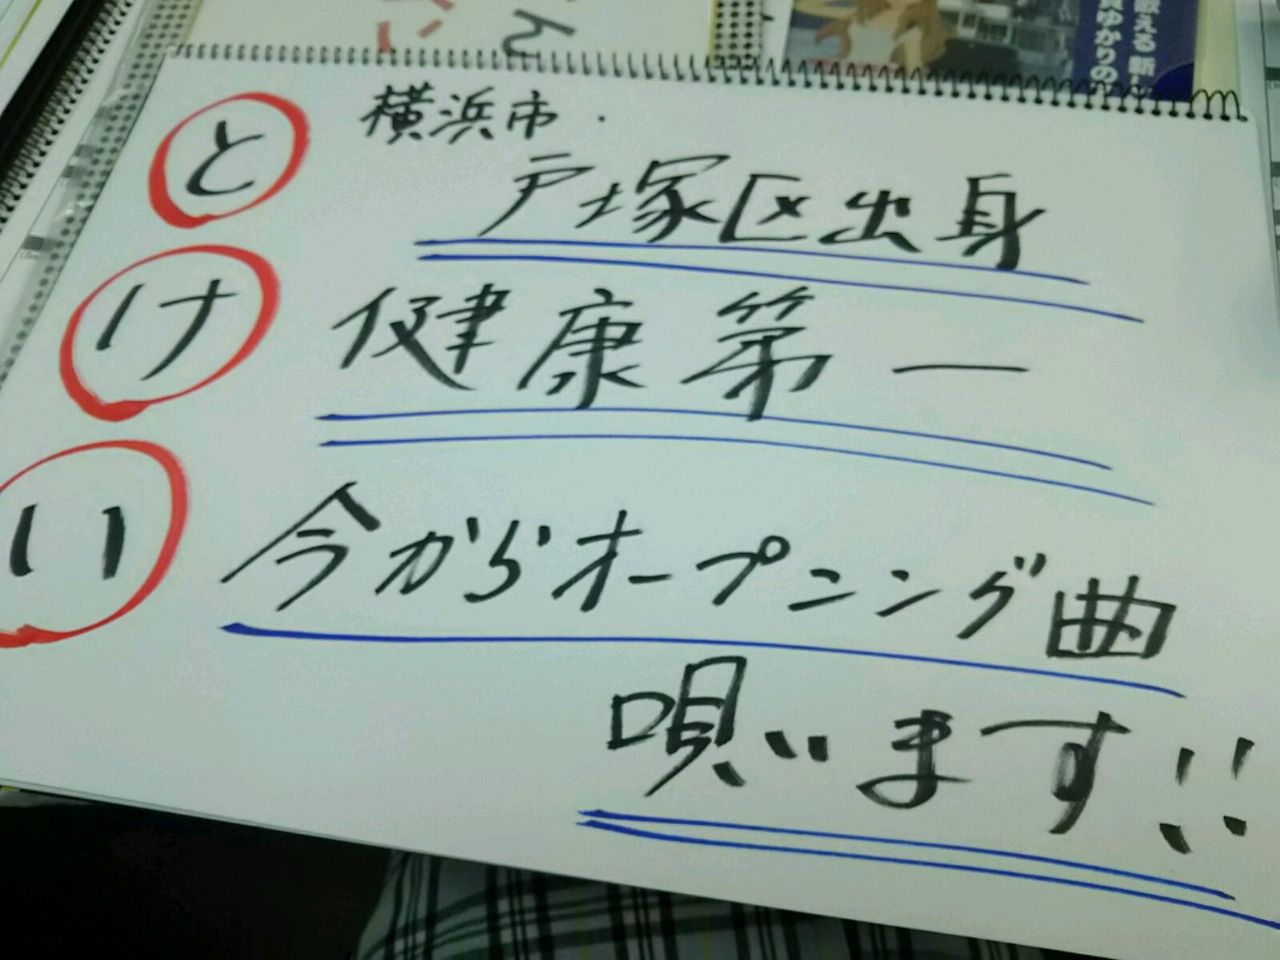 と 横浜市・
戸塚区出身
け 健康第一
い 今からオープニング曲
唄います!!